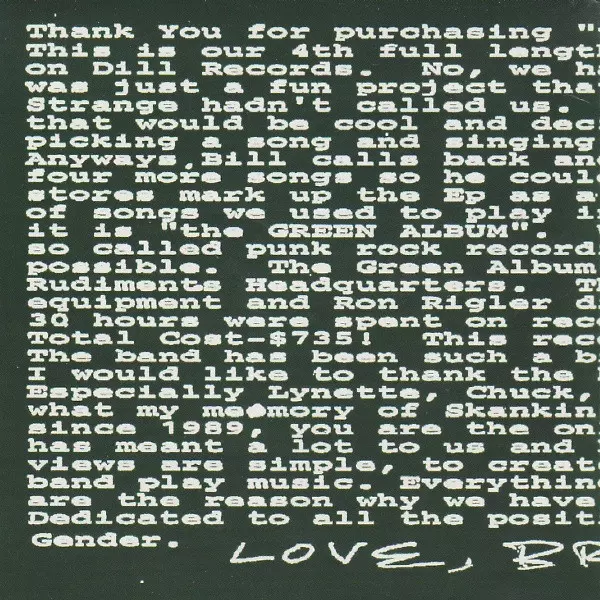 Thank You for purchasing "
This is our 4th full lengt
on Dill Records. No, we h
was just a fun project tha
Strange hadn't called us.
that would be cool and dec
picking a song and singing
Anyways,Bill calls back an
four more songs so he coul
stores mark up the Ep as a
of songs we used to play i
it is "the GREEN ALBUM".
so called punk rock record
possible. The Green Album
Rudiments Headquarters. T
equipment and Ron Rigler d
30 hours were spent on rec
Total Cost-$735! This rec
The band has been such a b
I would like to thank the
Especially Lynette, Chuck,
what my memory of Skankin
since 1989, you are the on
has meant a lot to us and
views are simple, to creat
band play music. Everythin
are the reason why we have
Dedicated to all the posit
Gender.
LOVE, BR